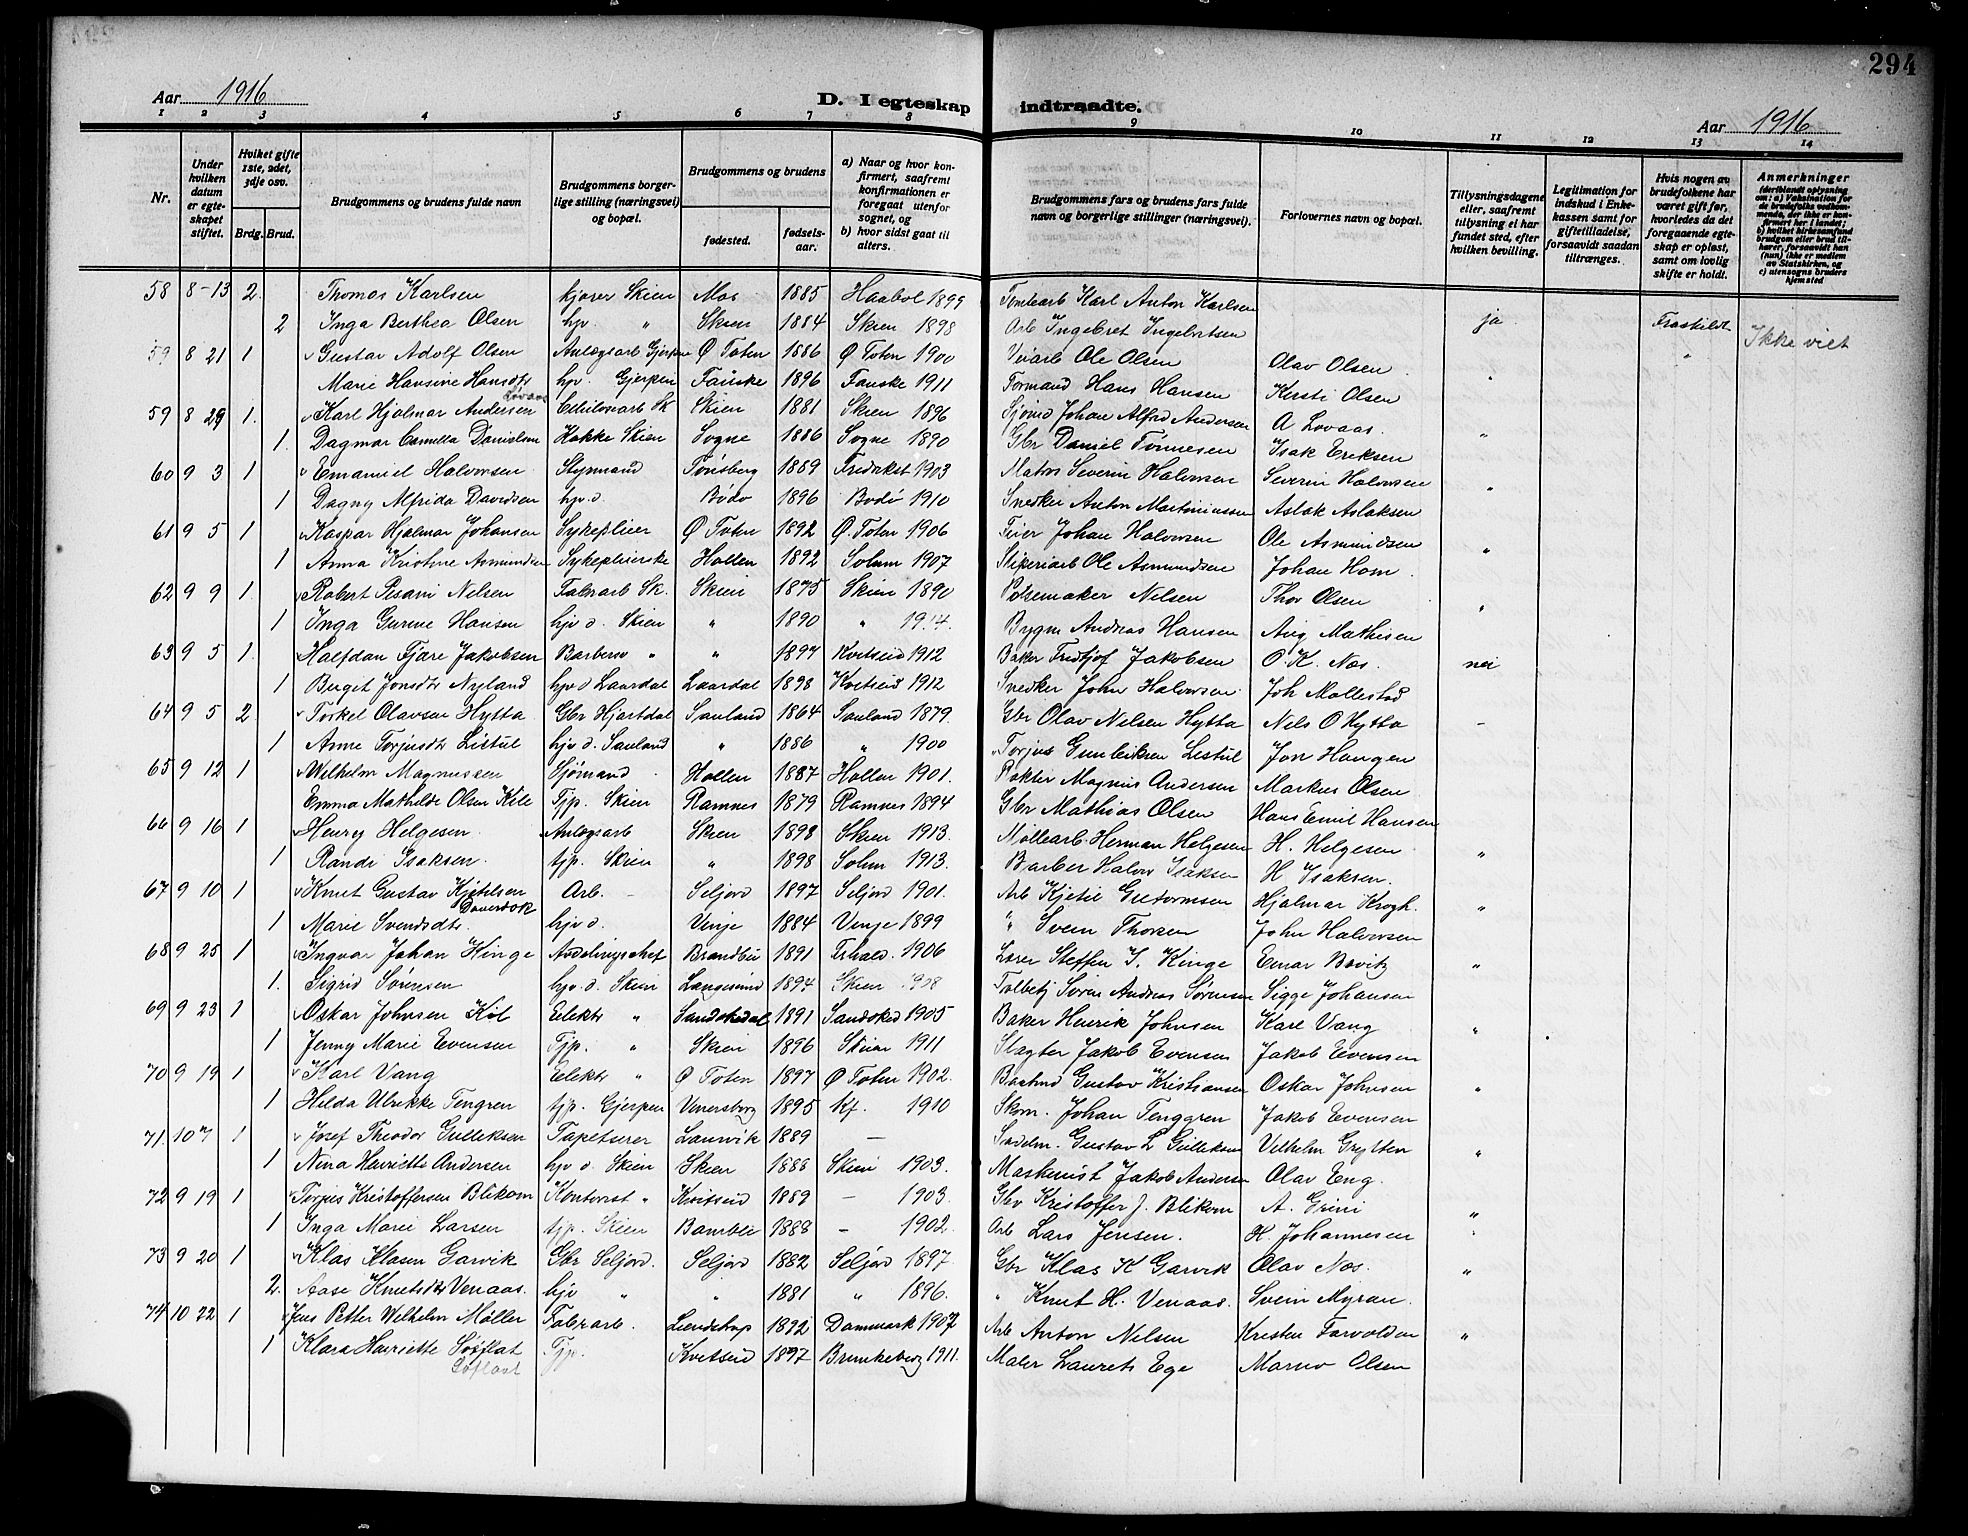 294
Aar 1916
D. I egteskap indtraadte.
Aar 1916
1 2 3 4 5 6 7 8 9 10 11 12 13 14
Nr.
Under hvilken datum er egteskapet stiftet.
Hvilket gifte 1ste, 2det, 3dje osv.
Brdg. Brud.
Brudgommens og brudens fulde navn
Brudgommens borgerlige stilling (næringsvei) og bopæl.
Brudgommens og brudens
fødested.
fødselsaar.
a) Naar og hvor konfirmert, saafremt konfirmationen er foregaat utenfor sognet, og
b) hvor sidst gaat til alters.
Brudgommens fars og brudens fars fulde navn og borgerlige stillinger (næringsvei).
Forlovernes navn og bopæl.
Tillysningsdagene eller, saafremt tillysning ei har fundet sted, efter hvilken bevilling.
Legitimation for indskud i Enkekassen samt for giftetilladelse, forsaavidt saadan tiltrænges.
Hvis nogen av brudefolkene har været gift før, hvorledes da det foregaaende egteskap er opløst, samt om lovlig skifte er holdt.
Anmerkninger
(deriblandt oplysning om: a) Vaksination for de brudefolks vedkommende, der ikke er konfirmert her i landet; b) hvilket kirkesamfund brudgom eller brud tilhører, forsaavidt han (hun) ikke er medlem av Statskirken, og c) utensogns bruders hjemsted
58 8-13 2 Thomas Karlsen kjører Skien Mos 1885 Haabøl 1899 Karl Anton Karlsen
2 Inga Berthea Olsen hjv. " Skien 1884 Skien 1898 Arb Ingebret Ingebretsen ja Fraskildt Ikke viet
59 8 21 1 Gustav Adolf Olsen Anlægsarb Gjerpen Ø Toten 1886 Ø Toten 1900 Veiarb Ole Olsen Olav Olsen "
Marie Hansine Hansdtr hjv. Gjerpen Fauske 1896 Fauske 1911 Formand Hans Hansen Kersti Olsen "
59 8 29 1. Karl Hjalmar Andersen Løvaas Sk Skien 1881 Skien 1896 Sjømd Johan Alfred Andersen A Løvaas.
1. Dagmar Camilla Danielsen Kokke Skien Sogne 1886 Sogne 1890 Gbr Daniel Tønnesen Isak Eriksen "
60 9 3 1 Emanuel Halvorsen Styrmand Tønsberg 1889 Fredrikst 1903 Matros Severin Halvorsen Severin Halvorsen
1 Dagny Alfrida Davidsen hjv. d. Bodø 1896 Bodø 1910 Snedker Anton Martiniussen Aslak Aslaksen "
61 9 5 1 Kaspar Hjalmar Johansen Sykepleier Ø Toten 1892 Ø. Toten 1906 Feier Johan Halvorsen Ole Asmundsen
1 Anna Kristine Asmundsen Sykepleierske Hollen 1892 Solum 1907 Ole Asmundsen Johan Hom "
62 9 9 1 Robert Nelsen Fabrarb Sk. Skien 1875 Skien 1890 Pølsemaker Nelsen Thor Olsen
1 Inga Gurine Hansen hjv d. Skien " 1890 " Bygm Andreas Hansen Aug Mathisen "
63 9 5 1. Halfdan Fjære Jakobsen Barberer " " 1897 Kvitseid 1912 Baker Fredtjof Jakobsen O. K. Næs. nei
1 Berget Jonsdtr Nyland hjv d Laardal Laardal 1898 Kvitseid 1912 Snedker John Halvorsen Joh Mollestad
64 9 5 2. Torkel Olavsen Hytta Gbr Hjartdal Sauland 1864 Sauland 1879. Gbr Olav Nelsen Hytta Nels O Hytta -
1 Anne Torjusdtr Listul hjv d. Sauland " 1886 " 1900 Torjus Gunleiksen Listul Jon Haugen
65 9 12 1 Wilhelm Magnussen Sjømand Hollen 1887 Hollen 1901. Magnus Andersen Markus Olsen
Emma Mathilde Olsen Kile Tjp. Skien Ramnes 1879 Ramnes 1894 Gbr Mathias Olsen Hans Emil Hansen
66 9 16 1 Henry Helgesen. Anlægsarb Skien 1898 Skien 1913. Møllearb. Herman Helgesen H. Helgesen
1 Randi Isaksen. tjp. Skien " 1898 Solum 1913. Barber Halvor Isaksen H Isaksen. "
67 9 10 1 Knut Gustav Kjetilsen Arb. - Seljord 1897 Seljord 1901. Arb Kjetil Guttormsen Hjalmar Krogh.
1 Marie Svendsdtr. hjv d. Vinje 1884 Vinje 1899 " Svein Thorsen John Halvorsen "
68 9 25 1 Ingvar Johan Kinge Avdelingschef Brandbu 1891 1906 Lærer Steffen J. Kinge Einar Bovitz
1. Sigrid Sørensen hjv. d. Skien Langesund 1894 Skien 1908 Tolbetj Søren Andreas Sørensen Sigge Johansen "
69 9 23 1 Oskar Johnsen Köl Elektr " Sandokedal 1891 Sandoked 1905 Baker Henrik Johnsen Karl Vang
1 Jenny Marie Evensen Tjp. " Skien 1896 Skien 1911 Slagter Jakob Evensen Jakob Evensen "
70 9 19 1 Karl Vang Elektr " Ø Toten 1897 Ø Toten 1902. Gustav Kristiansen Oskar Johnsen
1 Hilda Ulrikke Tengren tjp. Gjerpen Venersborg 1895 kf. 1910 Skom. Johan Tenggren Jakob Evensen "
71 10 7 1 Josef Theodor Gulleksen Tapetserer Laurvik 1889 - Sadelm. Gustav L Gulleksen Vilhelm Grytten
1 Nina Henriette Andersen hjv d. Skien Skien 1888 Skien 1903. Maskinist Jakob Andersen Olav Eng. "
72 9 19 1 Torjus Kristoffersen Blikom Kontorist " Kvitseid 1889 - 1903. Gbr Kristoffer J. Blikom A. Grini
1 Inga Marie Larsen tjp. Skien Bamble 1888 - 1902. Arb Lars Jensen. H. Johannesen "
73 9 20 1 Klas Klasen Garvik Gbr Seljord. Seljord 1882 Seljord 1897. Gbr Klas K Garvik Olav Næs.
2. Aase Knutsdtr Venaas. hjv " " 1881 " 1896. " Knut H. Venaas. Svein Myran. "
74 10 22 1 Jens Petter Wilhelm Møller Fabrarb. Lendstrup 1892 Danmark 1907 Arb Anton Nilsen Kristen Tarvolden
1 Klara Henriette Søflat Tjp. Kvitseid 1897 Brunkeberg 1911. Maler Laurets Ege Marno Olsen "
Søflaat